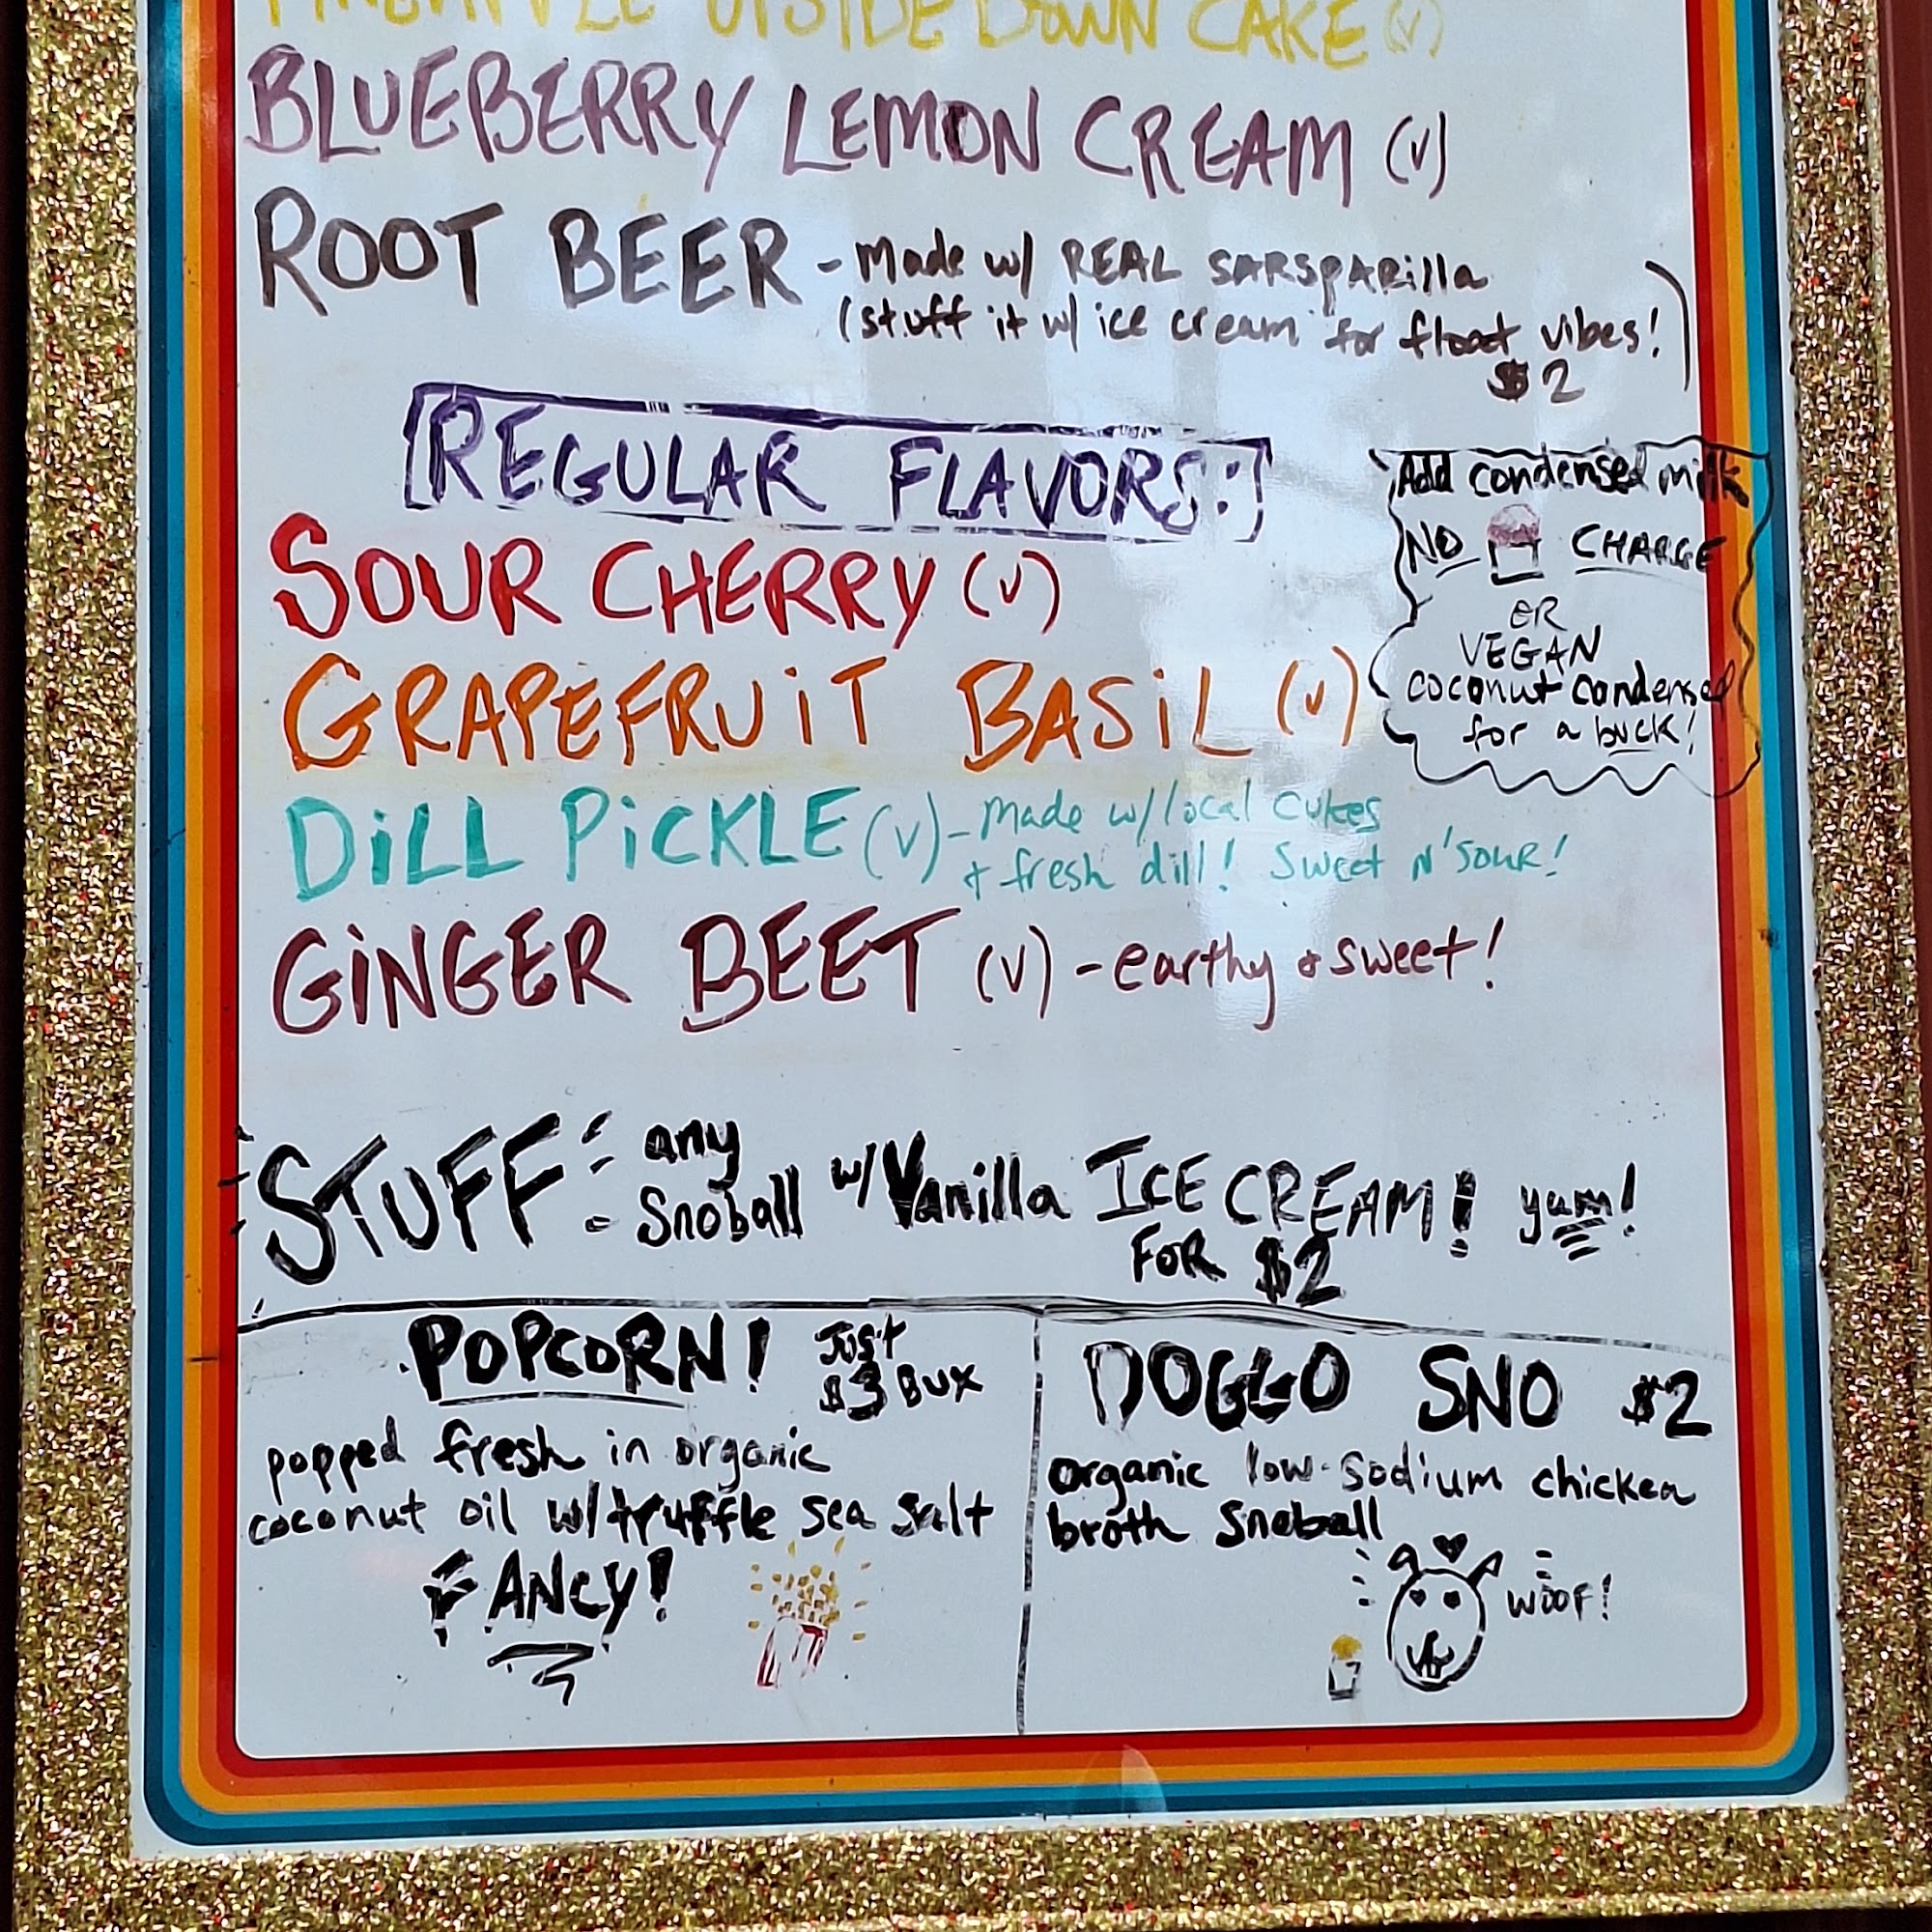 PINEAPPLE UPSIDE DOWN CAKE (V)
BLUEBERRY LEMON CREAM (V)
ROOT BEER - Made w/ REAL SARSPARilla
(stuff it w/ ice cream for float vibes!)
$2
[REGULAR FLAVORS:]
SOUR CHERRY (V)
GRAPEFRUiT BASiL (V)
DiLL PiCKLE (V) - Made w/ local cukes
+ fresh dill! Sweet N' SOUR!
GiNGER BEET (V) - earthy & sweet!
Add condensed milk
NO CHARGE
OR
VEGAN
coconut condensed
for a buck!
STUFF any
Snoball w/ Vanilla ICE CREAM! yum!
FOR $2
POPCORN! JUST
$3 BUX
popped fresh in organic
coconut oil w/ truffle sea salt
FANCY!
DOGGO SNO $2
organic low-sodium chicken
broth Snoball
WOOF!